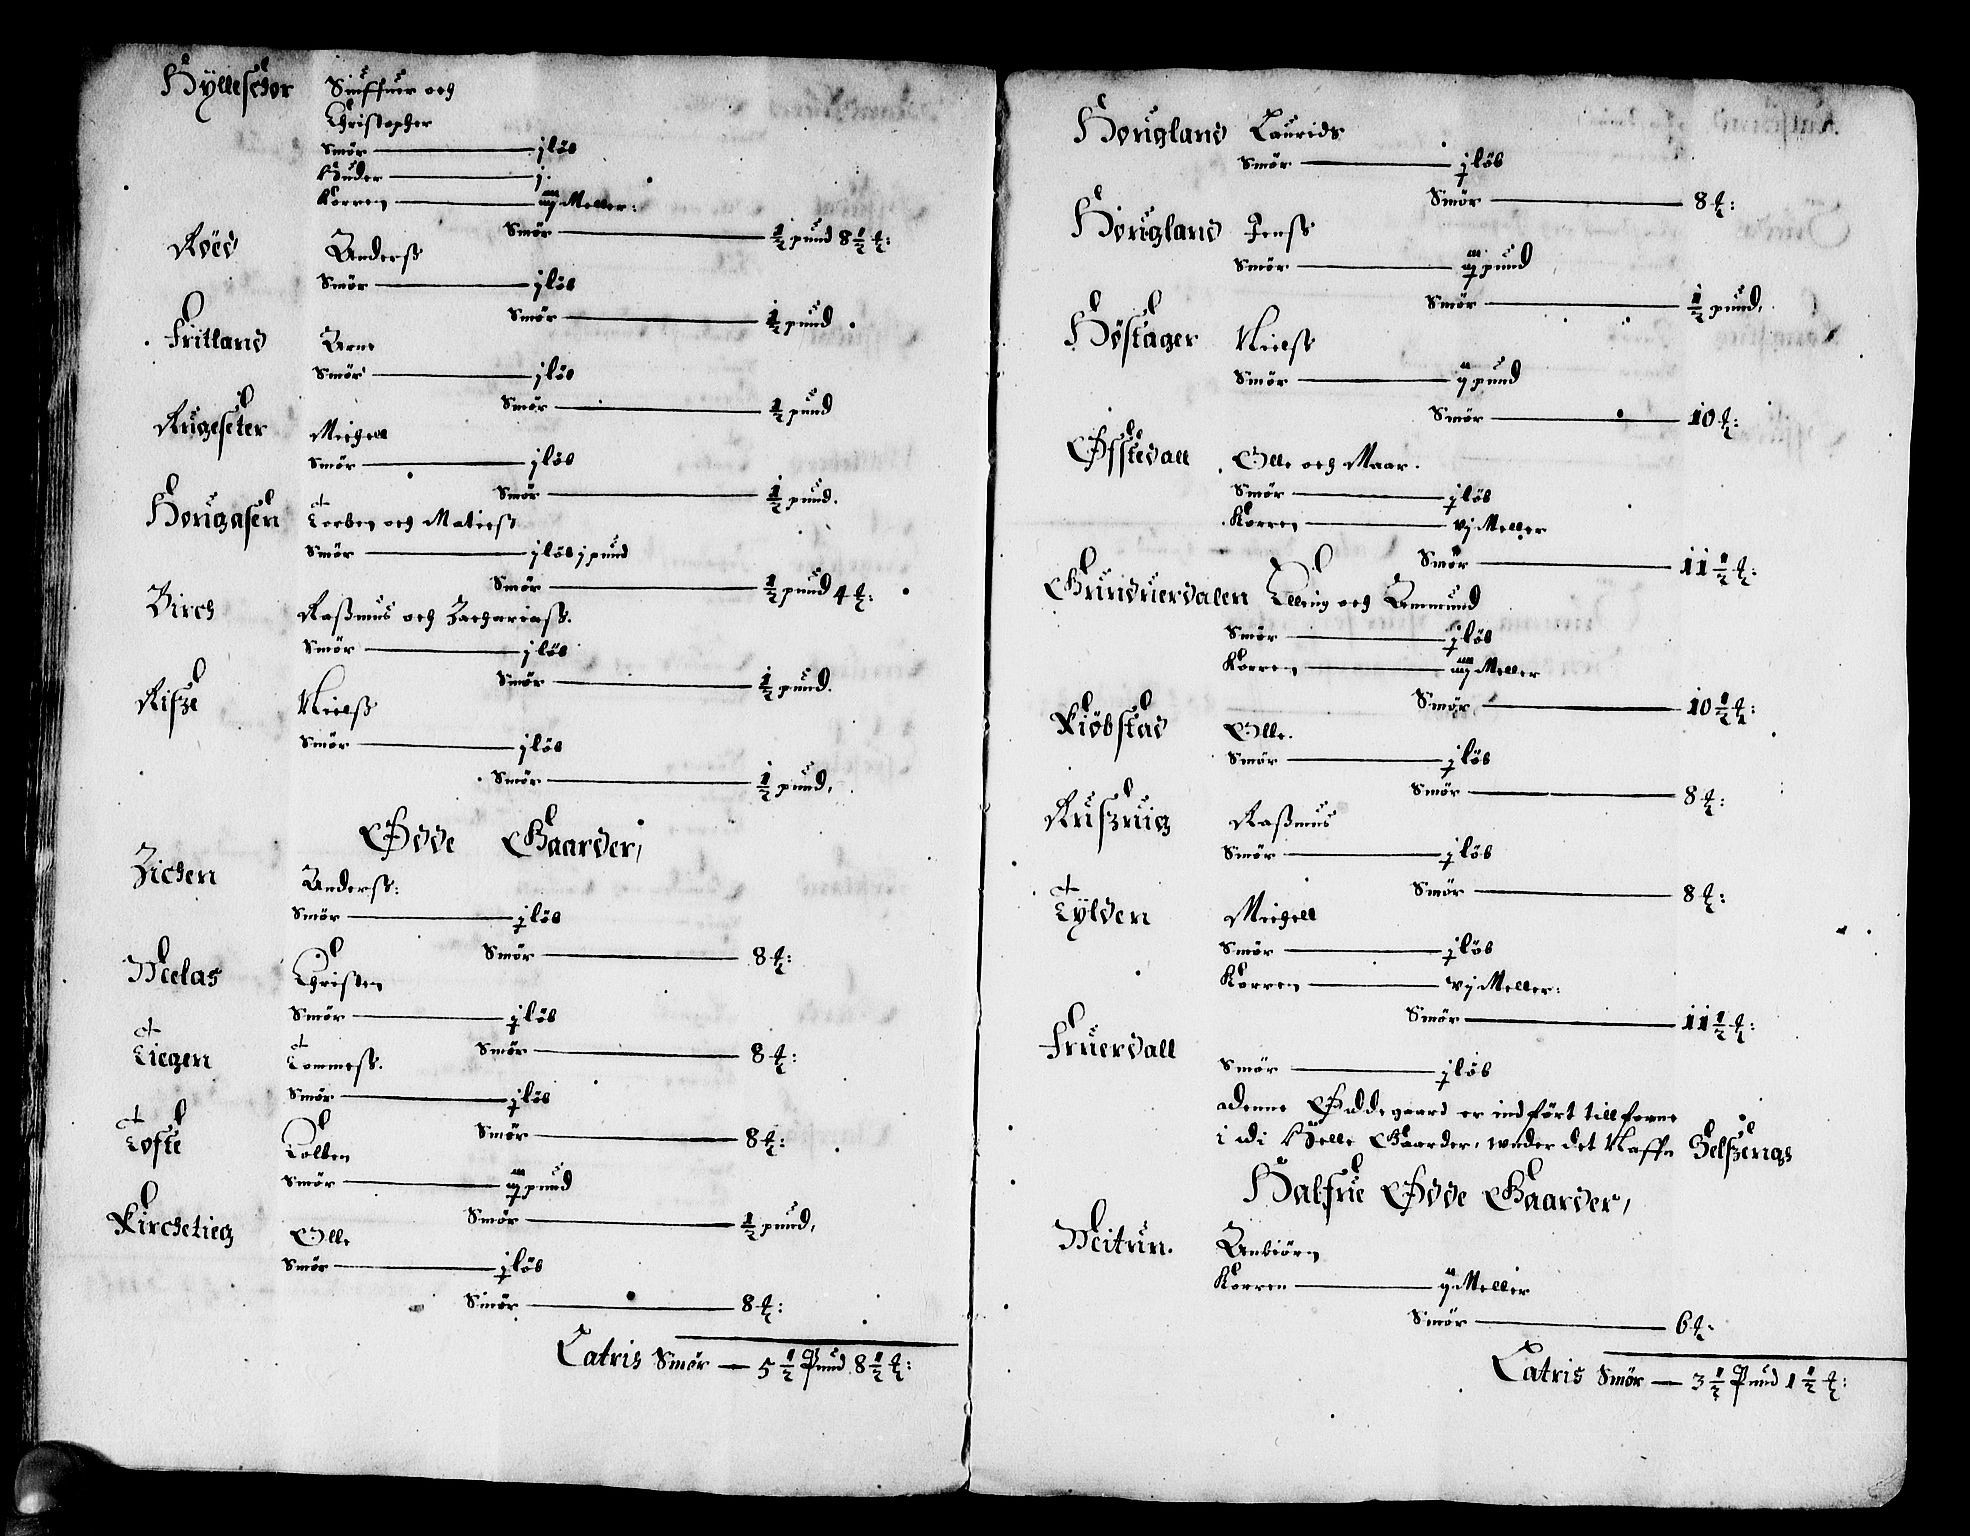 Hyllesetter Siuffuer och
Christopher
Smør — j løb
Huder — j.
Korren — iiij Meller:
Smør — ½ pund 8½ ℔:
Røed Anderss
Smør — j løb
Smør — ½ pund.
Fritland Arne
Smør — j løb
Smør — ½ pund
Rugeseter Michell
Smør — j løb
Smør — ½ pund.
Hougasen Torben och Matiess
Smør — j løb j pund
Smør — ½ pund 4 ℔:
Birch Rasmus och Zachariass.
Smør — j løb
Smør — ½ pund.
Risze Nielss
Smør — j løb
Smør — ½ pund,
Ødde Gaarder,
Anderss:
Smør — j løb
Smør — 8 ℔:
Melas Christen
Smør — j løb
Smør — 8 ℔:
Tiegen Tommess.
Smør — j løb
Smør — 8 ℔:
Tofte Tolben
Smør — iij pund
Smør — ½ pund,
Kirchetieg Olle
Smør — j løb
Smør — 8 ℔:
Latris Smør — 5½ Pund 8½ ℔:
Hougland Laurids
Smør — j løb
Smør — 8 ℔:
Hougland Jenss
Smør — iij pund
Smør — ½ pund,
Høstager Nielss
Smør — ij pund
Smør — 10 ℔:
Øfstedall Olle och Maar.
Smør — j løb
Korren — vj Meller
Smør — 11½ ℔:
Grunduerdalen Elling och Ammund
Smør — j løb
Korren — iiij Meller
Smør — 10½ ℔:
Kiøbstad Olle.
Smør — j løb
Smør — 8 ℔:
Ruszrug Rasmus
Smør — j løb
Smør — 8 ℔:
Tylden Michell
Smør — j løb
Korren — vj Meller:
Smør — 11½ ℔:
Fruerdall
Smør — j løb
Denne Øddegaard er indført tillforne
i di Helle Gaarder, wnder det Naffn Helszengs
Halfue Ødde Gaarder,
Meitun. Anbiørn
Korren — ij Meller
Smør — 6 ℔.
Latris Smør — 3½ Pund 1½ ℔: